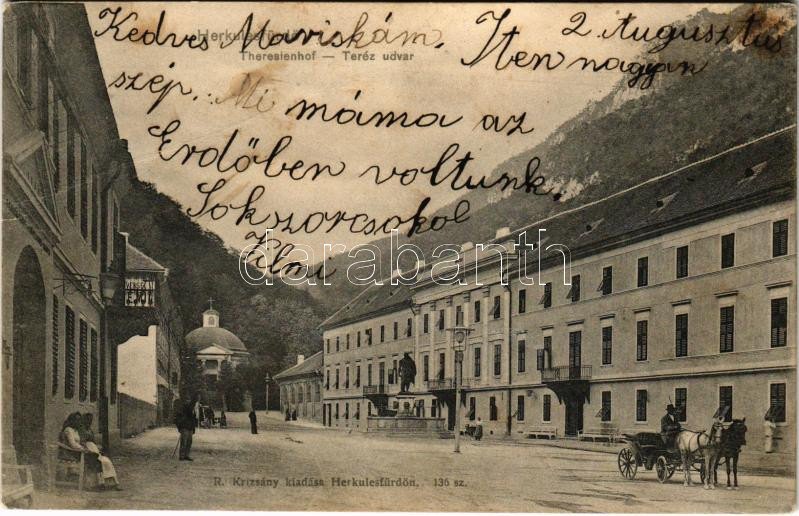 Herkulesfürdő
Theresienhof — Teréz udvar
Kedves Mariskám. Iten
2 Augusztus
nagyan
szép. Mi máma az
Erdőben voltunk.
Sokszorcsokol
Vilmi
darabanth
R. Krizsány kiadása Herkulesfürdőn. 136 sz.